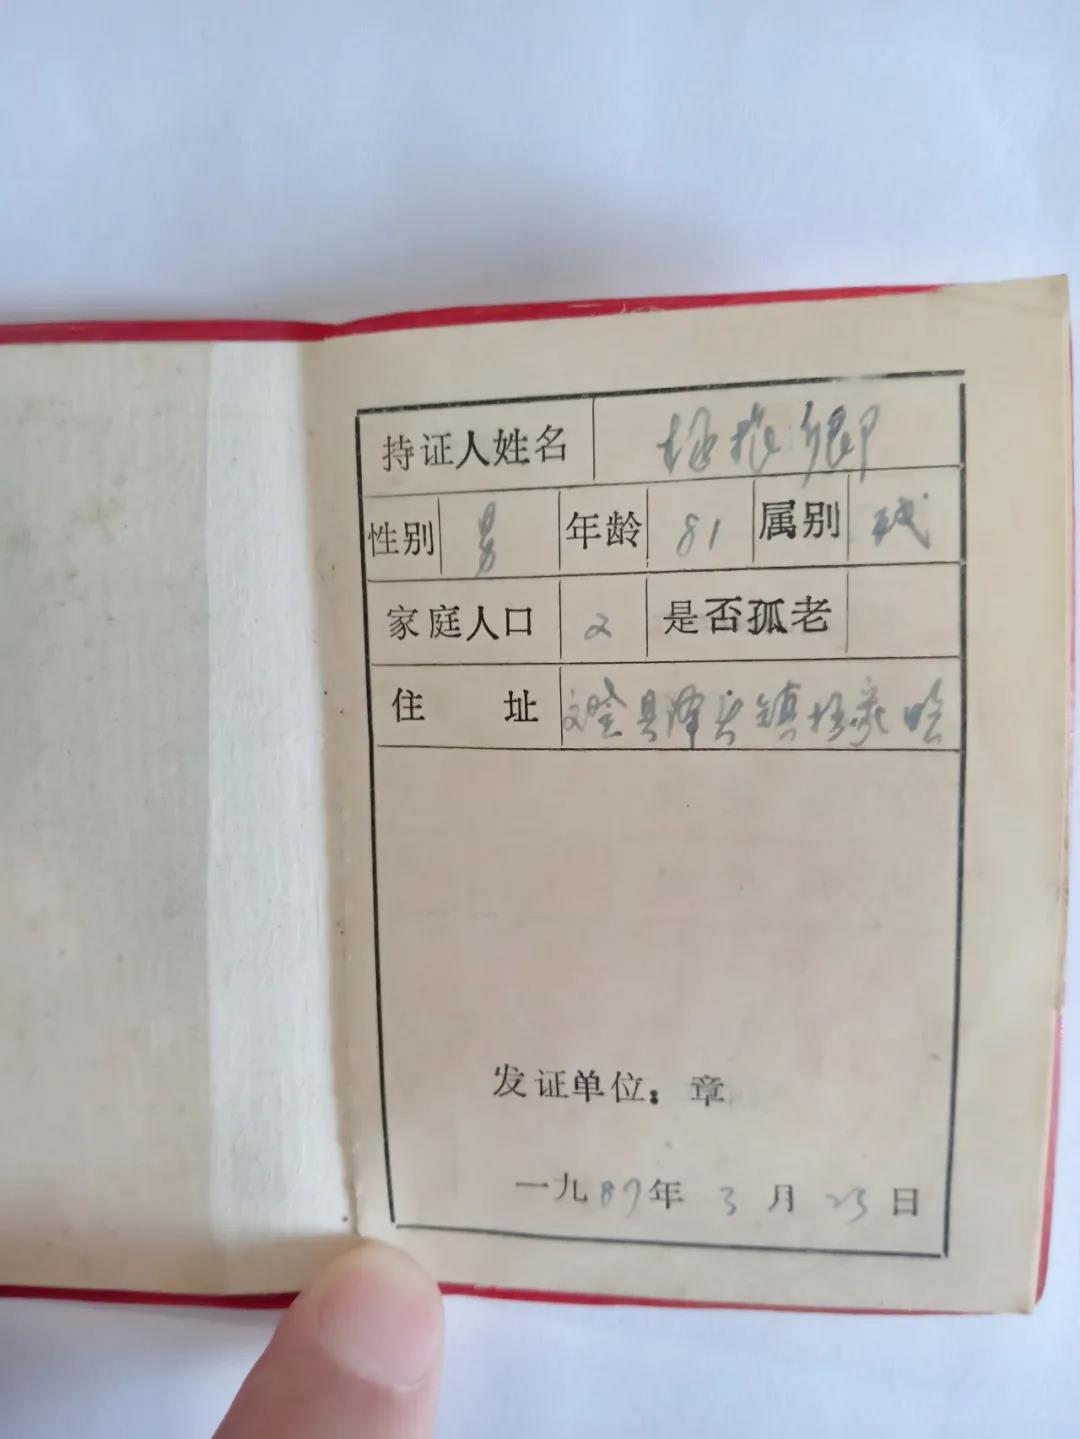 持证人姓名 振卿
性别 男 年龄 81 属别
家庭人口 2 是否孤老
住 址 文登县泽头镇 家
发证单位：章
一九87年 3 月 23 日